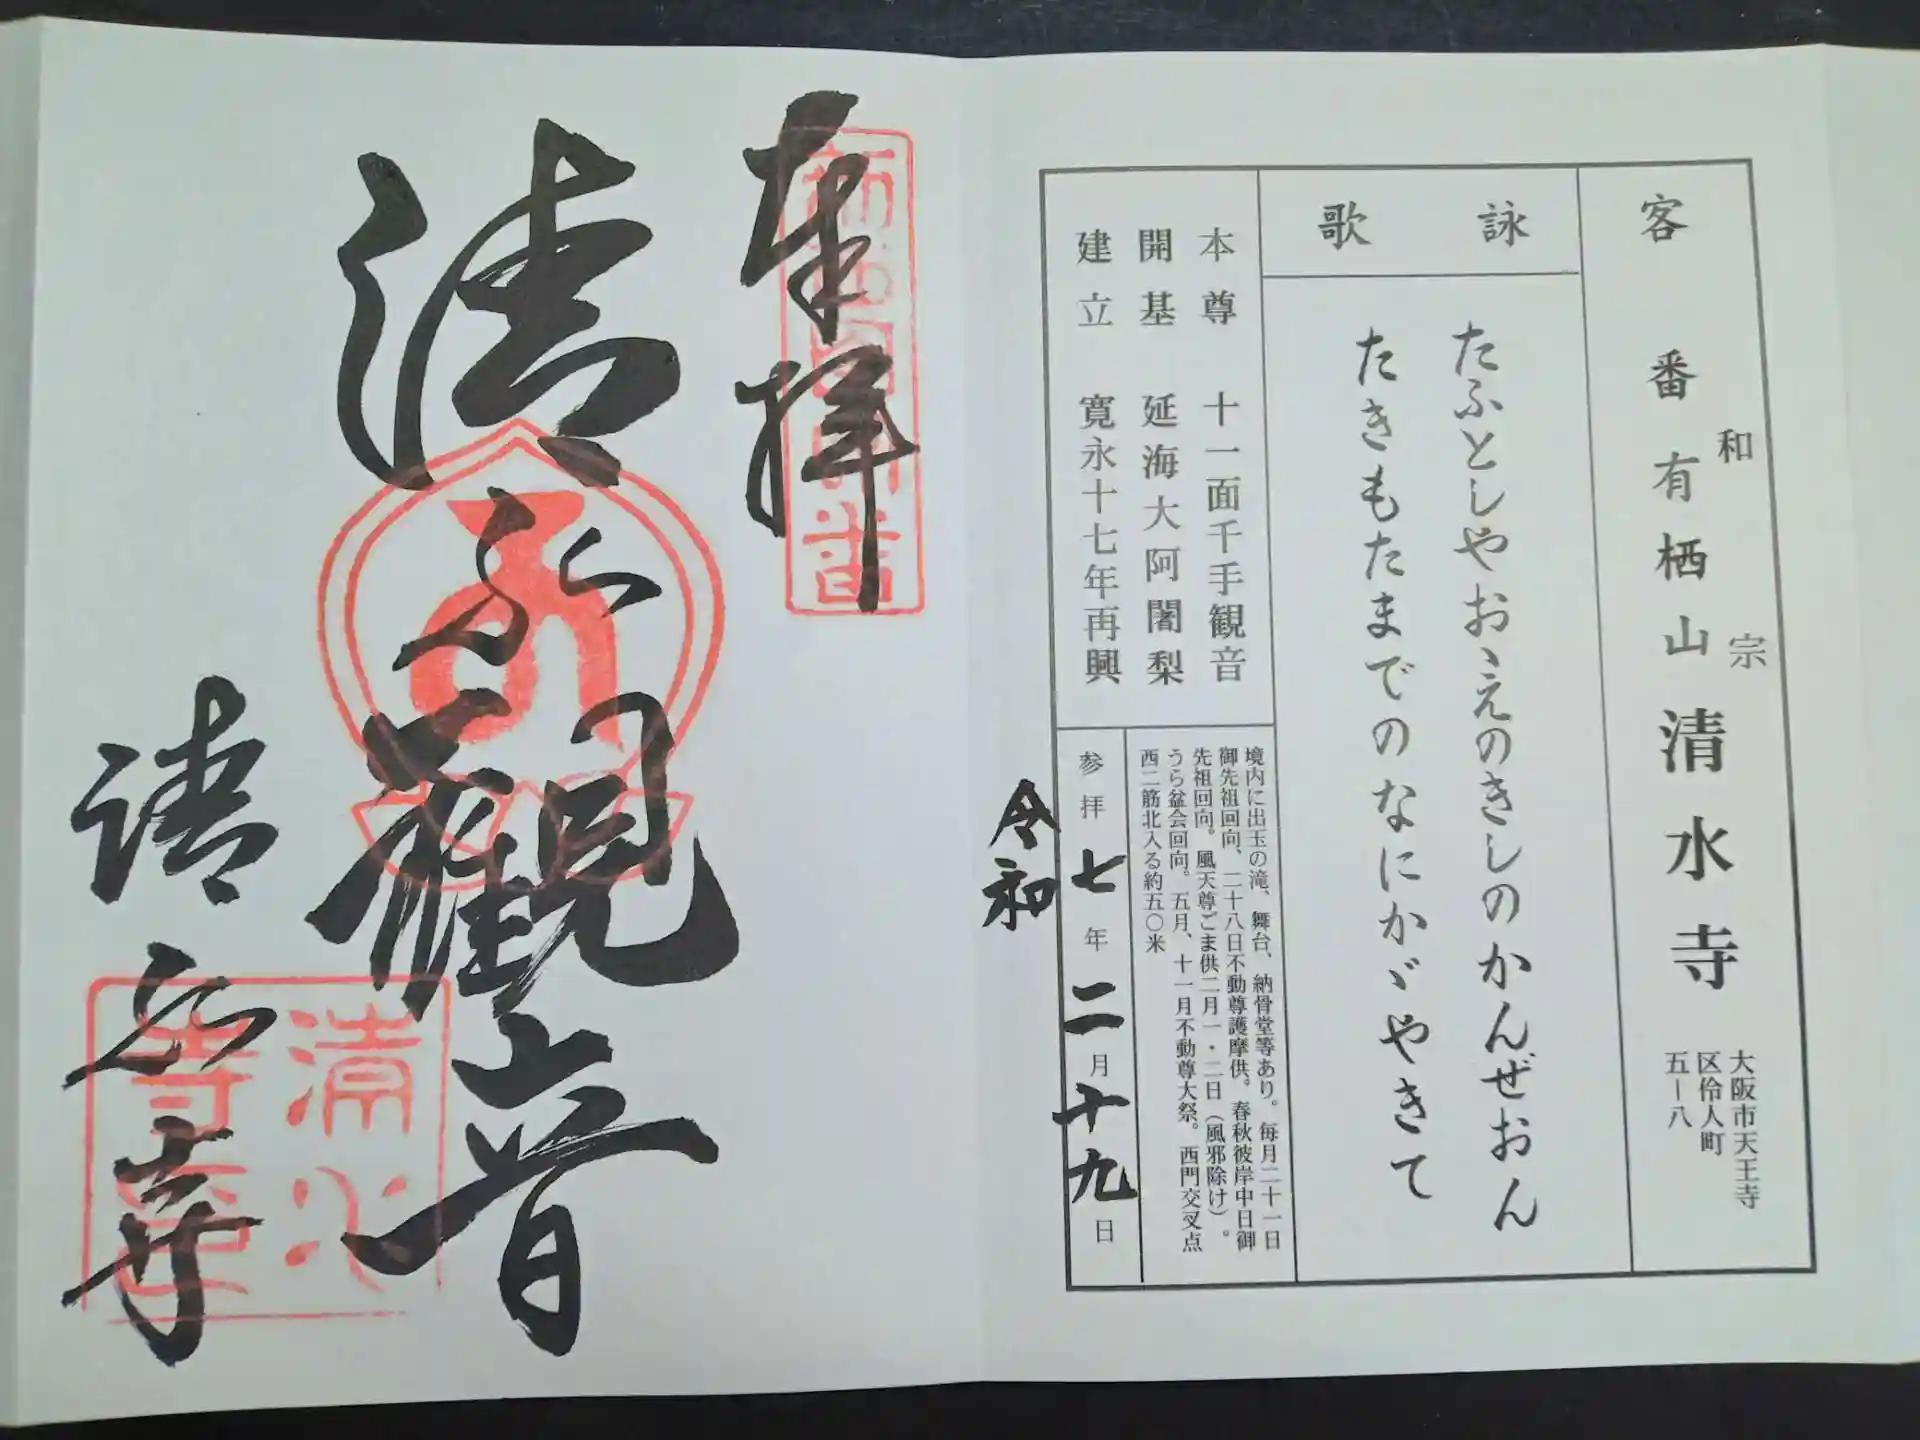 客番 有栖山 清水寺
和宗
大阪市天王寺
区伶人町
五ー八
詠歌
たふとしやおゝえのきしのかんぜおん
たきもたまでのなにかゞやきて
本尊 十一面千手観音
開基 延海大阿闍梨
建立 寛永十七年再興
境内に出玉の滝、舞台、納骨堂等あり。毎月二十一日
御先祖回向、二十八日不動尊護摩供。春秋彼岸中日御
先祖回向。風天尊ごま供二月一・二日(風邪除け)。
うら盆会回向。五月、十一月不動尊大祭。西門交叉点
西二筋北入る約五〇米
令和
参拝七年二月十九日
奉拝
清水観音
清水寺
清水
寺